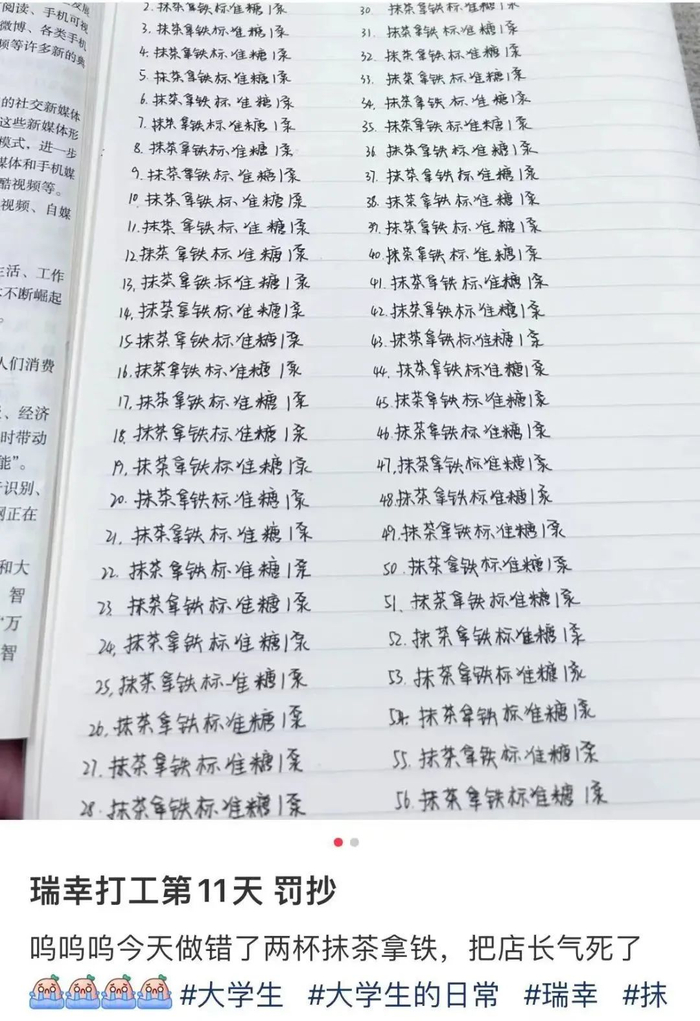 阅读、手机可视
微博、各类手机
频等许多新的典
的社交新媒体
这些新媒体形
模式，进一步
媒体和手机媒
酷视频等。
视频、自媒
生活、工作
不断崛起
人们消费
、经济
时带动
能”。
识别、
网正在
和大
智
“万
智
2. 抹茶拿铁标准糖1泵
3. 抹茶拿铁标准糖1泵
4. 抹茶拿铁标准糖1泵
5. 抹茶拿铁标准糖1泵
6. 抹茶拿铁标准糖1泵
7. 抹茶拿铁标准糖1泵
8. 抹茶拿铁标准糖1泵
9. 抹茶拿铁标准糖1泵
10. 抹茶拿铁标准糖1泵
11. 抹茶拿铁标准糖1泵
12. 抹茶拿铁标准糖1泵
13. 抹茶拿铁标准糖1泵
14. 抹茶拿铁标准糖1泵
15. 抹茶拿铁标准糖1泵
16. 抹茶拿铁标准糖1泵
17. 抹茶拿铁标准糖1泵
18. 抹茶拿铁标准糖1泵
19. 抹茶拿铁标准糖1泵
20. 抹茶拿铁标准糖1泵
21. 抹茶拿铁标准糖1泵
22. 抹茶拿铁标准糖1泵
23. 抹茶拿铁标准糖1泵
24. 抹茶拿铁标准糖1泵
25. 抹茶拿铁标准糖1泵
26. 抹茶拿铁标准糖1泵
27. 抹茶拿铁标准糖1泵
28. 抹茶拿铁标准糖1泵
30. 抹茶拿铁标准糖1泵
31. 抹茶拿铁标准糖1泵
32. 抹茶拿铁标准糖1泵
33. 抹茶拿铁标准糖1泵
34. 抹茶拿铁标准糖1泵
35. 抹茶拿铁标准糖1泵
36. 抹茶拿铁标准糖1泵
37. 抹茶拿铁标准糖1泵
38. 抹茶拿铁标准糖1泵
39. 抹茶拿铁标准糖1泵
40. 抹茶拿铁标准糖1泵
41. 抹茶拿铁标准糖1泵
42. 抹茶拿铁标准糖1泵
43. 抹茶拿铁标准糖1泵
44. 抹茶拿铁标准糖1泵
45. 抹茶拿铁标准糖1泵
46. 抹茶拿铁标准糖1泵
47. 抹茶拿铁标准糖1泵
48. 抹茶拿铁标准糖1泵
49. 抹茶拿铁标准糖1泵
50. 抹茶拿铁标准糖1泵
51. 抹茶拿铁标准糖1泵
52. 抹茶拿铁标准糖1泵
53. 抹茶拿铁标准糖1泵
54. 抹茶拿铁标准糖1泵
55. 抹茶拿铁标准糖1泵
56. 抹茶拿铁标准糖1泵
瑞幸打工第11天 罚抄
呜呜呜今天做错了两杯抹茶拿铁，把店长气死了
#大学生 #大学生的日常 #瑞幸 #抹